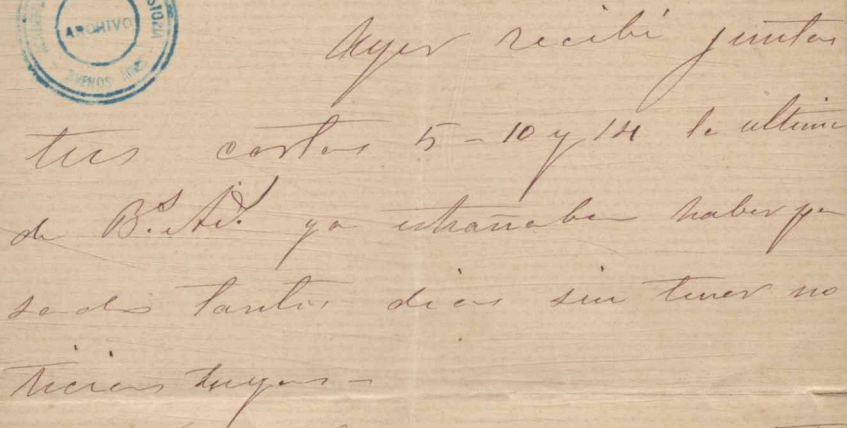 ARCHIVO
BUENOS AIRES
Ayer recibi juntas
tus cartas 5-10 y 14 la ultima
de B.s A.s ya estrañaba haber pa
sado tantos dias sin tener no
ticias tuyas-